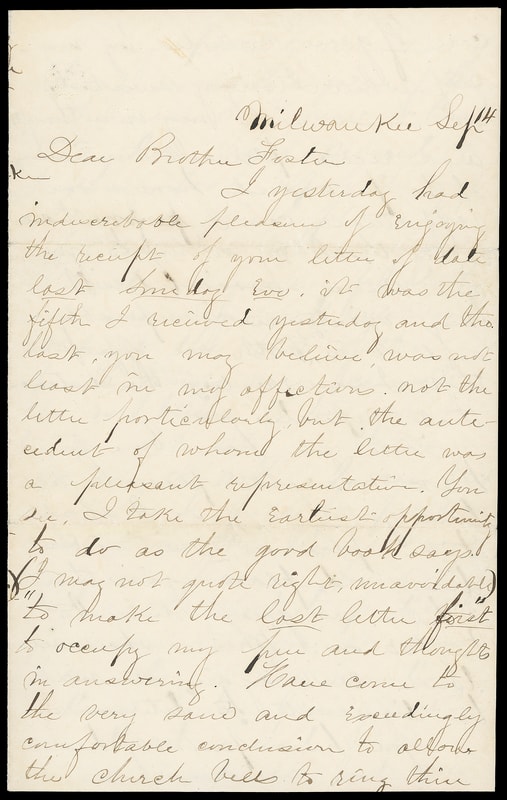 Milwaukee Sep 14
Dear Brother Foster
I yesterday had
indiscribable pleasure of Engoying
the receipt of your letter of date
last Sunday Eve. it was the
fifth I recieved yesterday and the
last, you may believe, was not
least in my affections. not the
letter particularly, but the ante-
cedent of whom the letter was
a pleasant representative. You
see, I take the Earliest opportunity
to do as the good book says.
(I may not quote right, unavoidable)
"to make the last letter first"
to occupy my pen and thoughts
in answering. Have come to
the very sane and Exceedingly
comfortable conclusion to allow
the church bells to ring thier